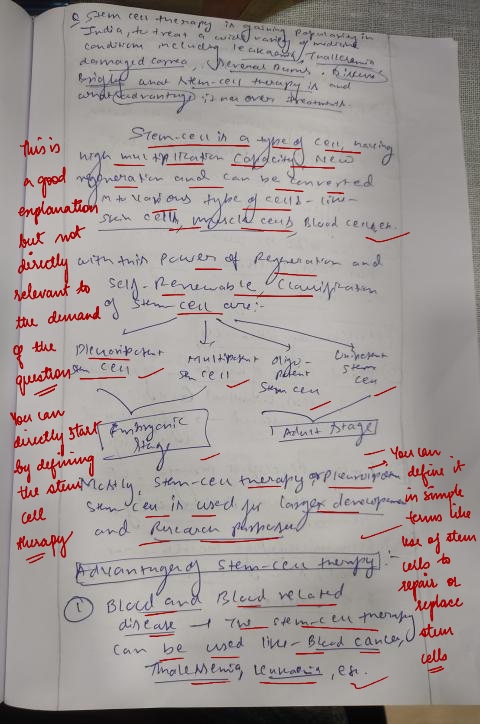 Q. Stem cell therapy is gaining popularity in
India, to treat a wide variety of medical
conditions including leukaemia, Thallesemia
damaged cornea, several Burns. Discuss
Briefly what stem-cell therapy is and
what advantage it has over treatment.
Stem-cell is a type of cell, having
high multiplication Capacity, New
regeneration and can be converted
into various type of cells - like -
skin cells, muscle cells, Blood cells etc.
with this power of Regeneration and
self-Renewable, Classification
of stem cell are:-
stem cell
Multipotent
stem cell
Oligo-
potent
stem cell
Unipotent
stem
cell
Embryonic
stage
Adult stage
Mostly, stem-cell therapy or
stem cell is used for larger development
and Research purposes
Advantages of stem-cell therapy:-
① Blood and Blood related
disease → The stem-cell therapy
can be used like - Blood cancer,
Thalessemia, leukamia, etc.
This is
a good
explanation
but not
directly
relevant to
the demand
of the
question
You can
directly start
by defining
the stem
cell
therapy
You can
define it
in simple
terms like
use of stem
cells to
repair or
replace
stem
cells